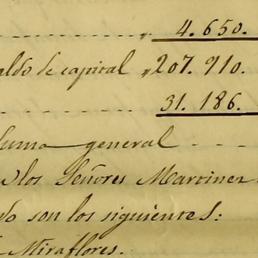 4.650.
aldo de capital " 207.910.
31.186.
Suma general
los Señores Martinez
do son los siguientes:
Miraflores.